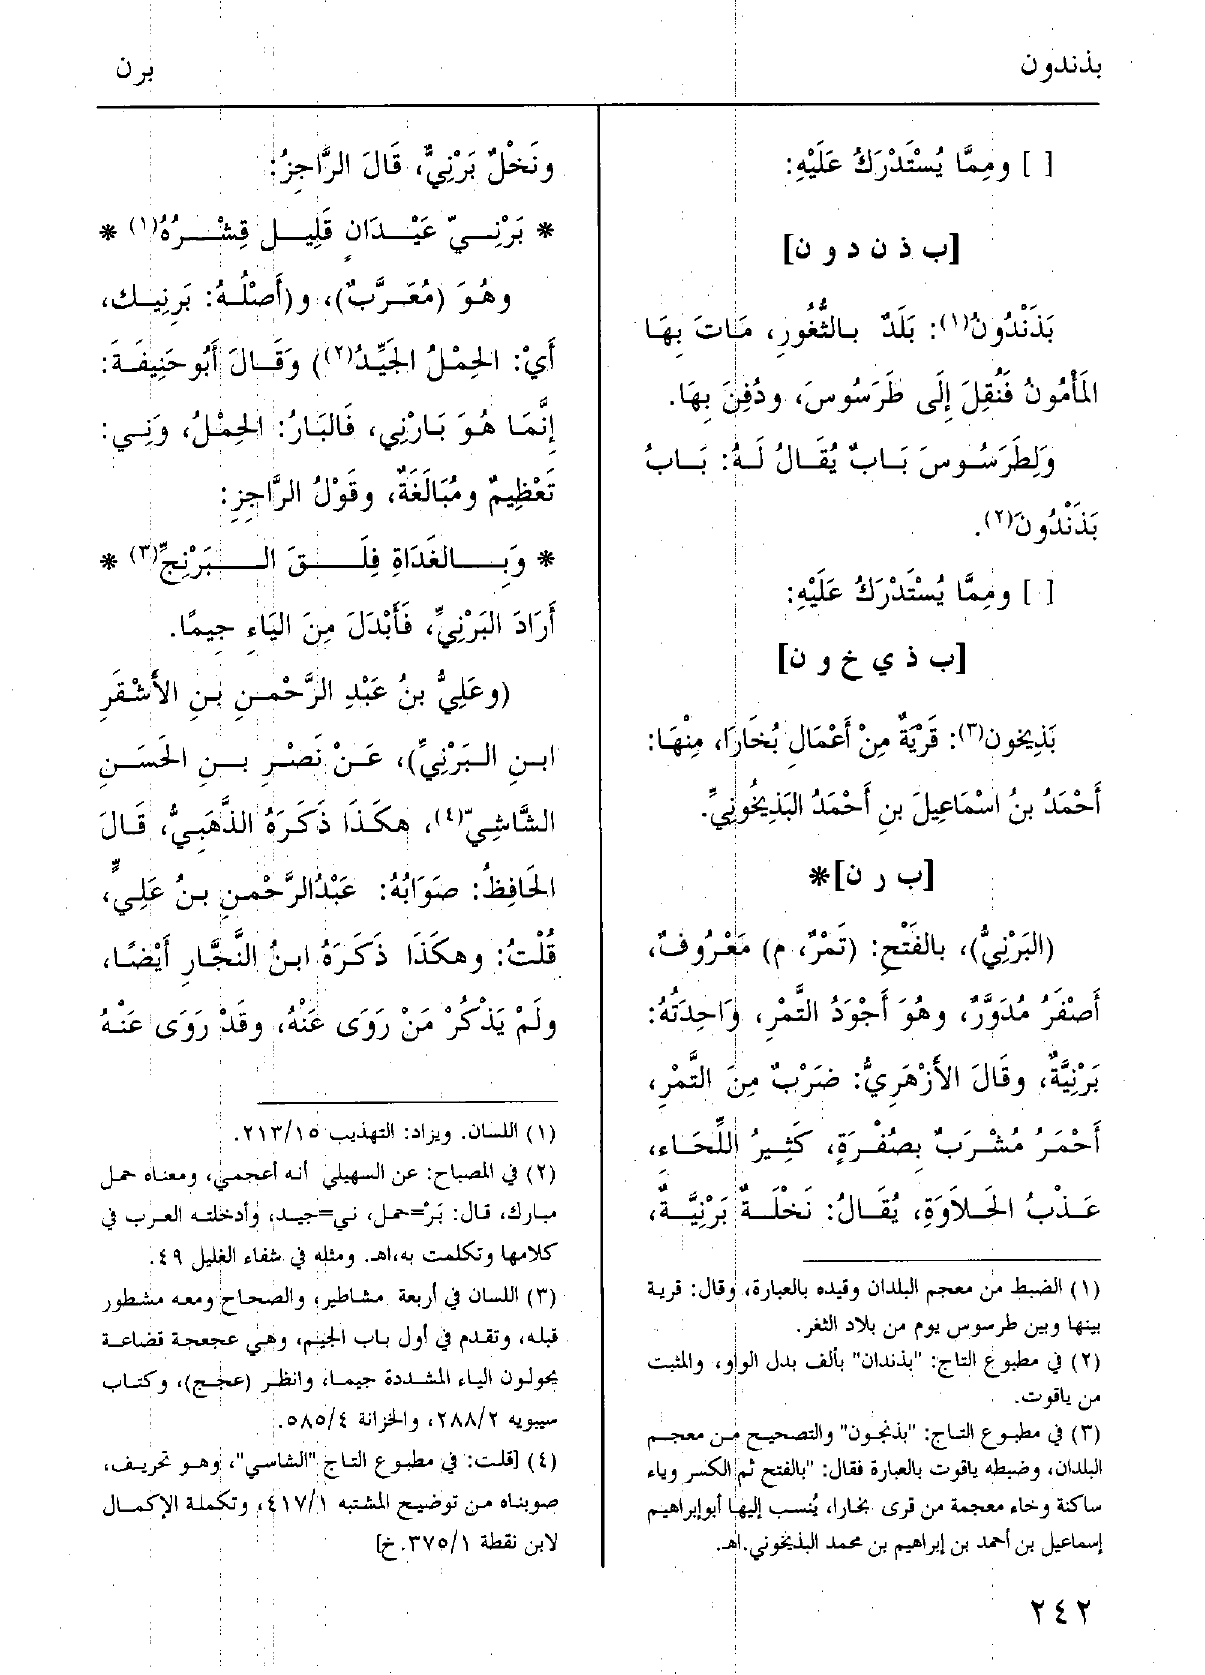 بذندون
برن
[ ] ومِمَّا يُسْتَدْرَكُ عَلَيْهِ:
[ب ذ ن د و ن]
بَذَنْدُونُ(١): بَلَدٌ بِالثُّغُورِ، مَاتَ بِهَا
المَأْمُونُ فَنُقِلَ إِلَى طَرَسُوسَ، ودُفِنَ بِهَا.
وَلِطَرَسُوسَ بَابٌ يُقَالُ لَهُ: بَابُ
بَذَنْدُونَ(٢).
[ ] ومِمَّا يُسْتَدْرَكُ عَلَيْهِ:
[ب ذ ي خ و ن]
بَذِيخُون(٣): قَرْيَةٌ مِنْ أَعْمَالِ بُخَارَا، مِنْهَا:
أَحْمَدُ بنُ اسْمَاعِيلَ بنِ أَحْمَدُ البَذِيخُونِيِّ.
[ب ر ن]*
(البَرْنِيُّ)، بالفَتْحِ: (تَمْرٌ، م) مَعْرُوفٌ،
أَصْفَرُ مُدَوَّرٌ، وهُوَ أَجْوَدُ التَّمْرِ، وَاحِدَتُهُ:
بَرْنِيَّةٌ، وقَالَ الأَزْهَرِيُّ: ضَرْبٌ مِنَ التَّمْرِ،
أَحْمَرُ مُشْرَبٌ بِصُفْرَةٍ، كَثِيرُ اللِّحَاءِ،
عَذْبُ الحَلاَوَةِ، يُقَالُ: نَخْلَةٌ بَرْنِيَّةٌ،
(١) الضبط من معجم البلدان وقيده بالعبارة، وقال: قرية
بينها وبين طرسوس يوم من بلاد الثغر.
(٢) في مطبوع التاج: "بذندان" بألف بدل الواو، والمثبت
من ياقوت.
(٣) في مطبوع التاج: "بذنجون" والتصحيح من معجم
البلدان، وضبطه ياقوت بالعبارة فقال: "بالفتح ثم الكسر وياء
ساكنة وخاء معجمة من قرى بخارا، يُنسب إليها أبوإبراهيم
إسماعيل بن أحمد بن إبراهيم بن محمد البذيخوني.اهـ.
ونَخْلٌ بَرْنِيٌّ، قَالَ الرَّاجِزُ:
* بَرْنِيّ عَيْدَانٍ قَلِيل قِشْرُهُ(١) *
وهُوَ (مُعَرَّبٌ)، و(أَصْلُهُ: بَرنِيك،
أَيْ: الحِمْلُ الجَيِّدُ(٢)) وَقَالَ أَبُو حَنِيفَةَ:
إِنَّمَا هُوَ بَارْنِي، فَالبَارُ: الحِمْلُ، ونِي:
تَعْظِيمٌ ومُبَالَغَةٌ، وقَوْلُ الرَّاجِزِ:
* وَبِالغَدَاةِ فِلَقَ البَرْنِجِّ(٣) *
أَرَادَ البَرْنِيِّ، فَأَبْدَلَ مِنَ اليَاءِ جِيمًا.
(وعَلِيُّ بنُ عَبْدِ الرَّحْمنِ بنِ الأَشْقَرِ
ابنِ البَرْنِيِّ)، عَنْ نَصْرِ بنِ الحَسَنِ
الشَّاشِيّ(٤)، هكَذَا ذَكَرَهُ الذَّهَبِيُّ، قَالَ
الحَافِظُ: صَوَابُهُ: عَبْدُالرَّحْمنِ بنُ عَلِيٍّ،
قُلْتُ: وهكَذَا ذَكَرَهُ ابنُ النَّجَّارِ أَيْضًا،
ولَمْ يَذْكُرْ مَنْ رَوَى عَنْهُ، وقَدْ رَوَى عَنْهُ
(١) اللسان. ويزاد: التهذيب ٢١٣/١٥.
(٢) في المصباح: عن السهيلي أنه أعجمي، ومعناه حمل
مبارك، قال: بَرْ=حمل، ني=جيد، وأدخلته العرب في
كلامها وتكلمت به،اهـ. ومثله في شفاء الغليل ٤٩.
(٣) اللسان في أربعة مشاطير، والصحاح ومعه مشطور
قبله، وتقدم في أول باب الجيم، وهي عجعجة قضاعة
يحولون الياء المشددة جيما، وانظر (عجج)، وكتاب
سيبويه ٢٨٨/٢، والخزانة ٥٨٥/٤.
(٤) [قلت: في مطبوع التاج "الشاسي"، وهو تحريف،
صوبناه من توضيح المشتبه ٤١٧/١، وتكملة الإكمال
لابن نقطة ٣٧٥/١. خ]
٢٤٢